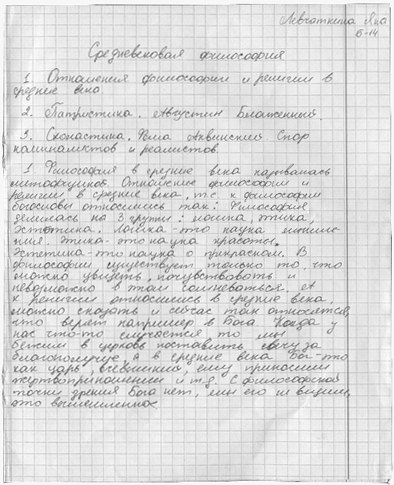 Левчаткина Яна
Б-14
Средневековая философия
1. Отношения философии и религии в
средние века.
2. Патристика. Августин Блаженный.
3. Схоластика. Фома Аквинский Спор
номиналистов и реалистов.
1 Философия в средние века называлась
Отношение философии и
религии в средние века, т.е. к философии
богословы относились так: Философия
делилась на 3 группы: логика, этика,
эстетика. Логика – это наука мышле-
ния. Этика – это наука красоты.
Эстетика – это наука о прекрасном. В
философии существует только то, что
можно увидеть, почувствовать и
невозможно в том сомневаться. А
к религии относились в средние века,
можно сказать и сейчас так относятся,
что верят например в Бога. Когда у
нас что-то случается то мы
бежим в церковь поставить свечу за
благополучие, а в средние века Бог – это
как царь, всевышний, ему приносили
жертвоприношения и т.д. С философской
точки зрения Бога нет, мы его не видим,
это вымышленное.